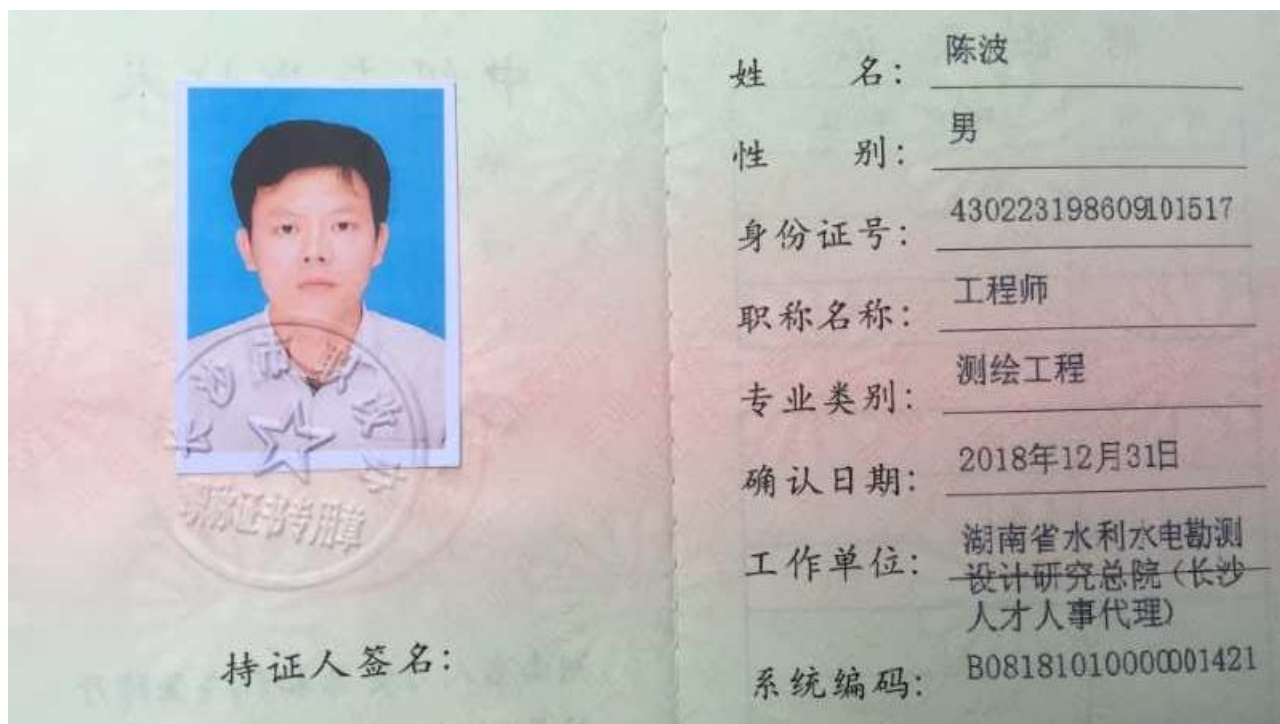 姓 名: 陈波
性 别: 男
身份证号: 430223198609101517
职称名称: 工程师
专业类别: 测绘工程
确认日期: 2018年12月31日
工作单位: 湖南省水利水电勘测
设计研究总院(长沙
人才人事代理)
系统编码: B08181010000001421
职称证书专用章
持证人签名: